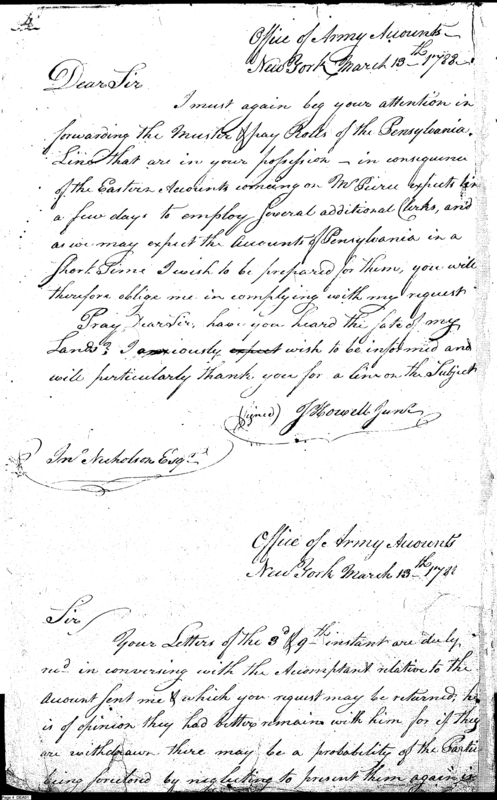 4
Office of Army Accounts
New York March 13th 1788.
Dear Sir
I must again beg your attention in
forwarding the Muster & pay Rolls of the Pensylvania
Line that are in your possession — in consequence
of the Eastern Accounts comeing on Mr Pierce expects in
a few days to employ several additional Clerks, and
as we may expect the Accounts of Pensylvania in a
Short Time I wish to be prepared for them, you will
therefore oblige me in complying with my request
Pray, Dear Sir, have you heard the fate of my
Lands? I anxiously expect wish to be informed and
will particularly thank you for a line on the Subject
(signed) J Howell Junr
Jno Nicholson Esqr
Office of Army Accounts
New York March 13th 1788
Sir
Your Letters of the 3d & 9th instant are duly
recd in conversing with the Accomptant relative to the
Account sent me & which you request may be returned, he
is of opinion they had better remain with him for if they
are withdrawn there may be a probability of the Partie
being foreclored by neglecting to present them again in